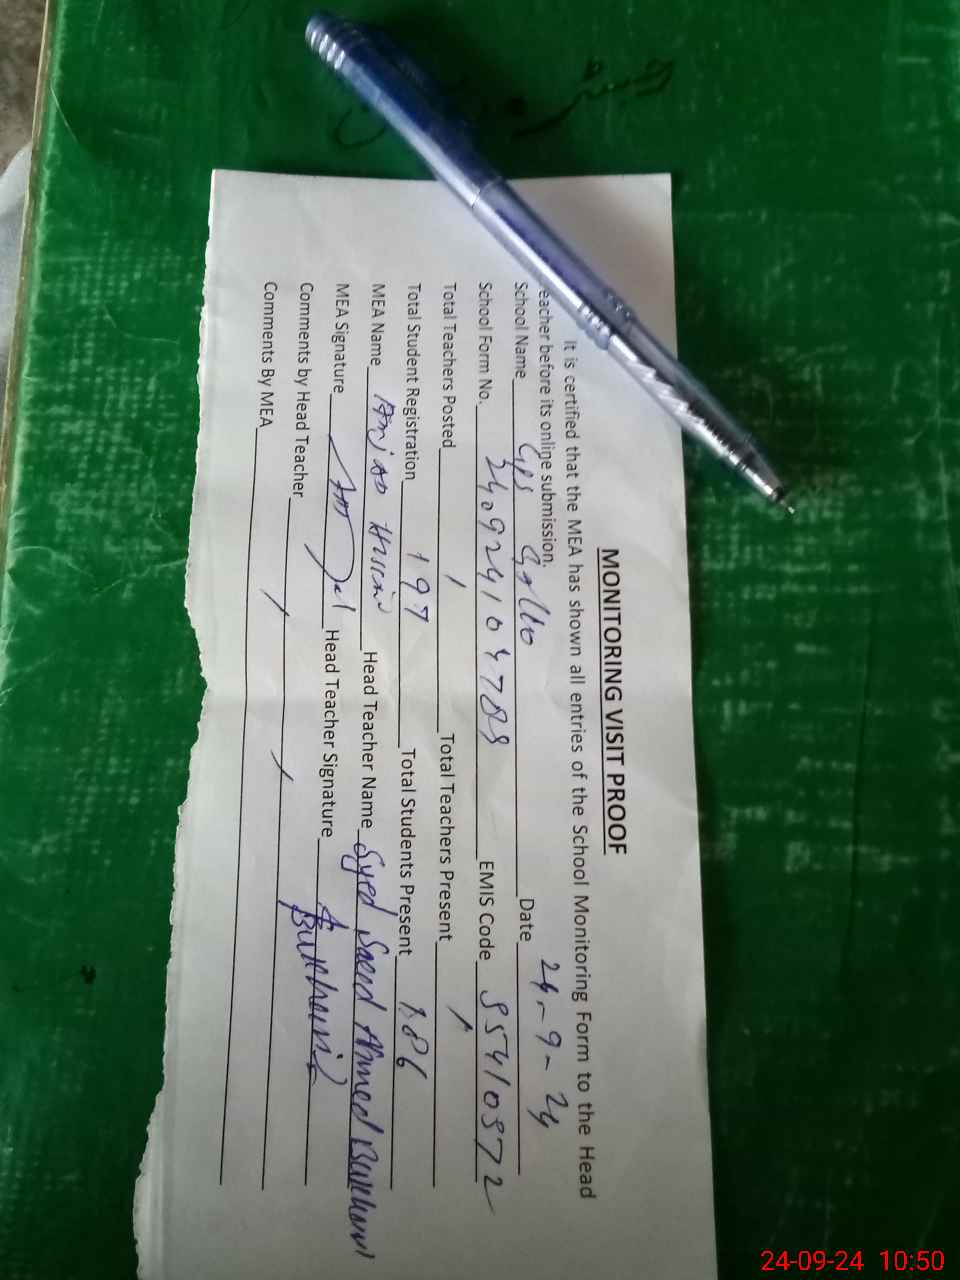 MONITORING VISIT PROOF
It is certified that the MEA has shown all entries of the School Monitoring Form to the Head
eacher before its online submission.
School Name GPS Date 24-9-24
School Form No. EMIS Code
Total Teachers Posted 1 Total Teachers Present 1
Total Student Registration 197 Total Students Present 186
MEA Name Head Teacher Name Syed Saeed Ahmed Bukhari
MEA Signature Head Teacher Signature
Comments by Head Teacher
Comments By MEA
24-09-24 10:50